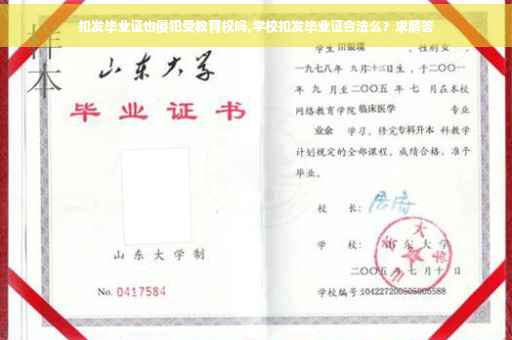 扣发毕业证也侵犯受教育权吗,学校扣发毕业证合法么？求解答
样本
山东大学
毕业证书
山东大学制
No. 0417584
学生 田银瑞 ，性别 女 ，
一九七八年 九月十三日生，于二〇〇一
年 九 月至二〇〇五 年 七 月在本校
网络教育学院 临床医学 专业
业余 学习，修完专科升本 科教学
计划规定的全部课程，成绩合格，准予
毕业。
校 长：
学 校：山东大学
二〇〇五 年 七 月 十 日
学校编号:104227200505005588